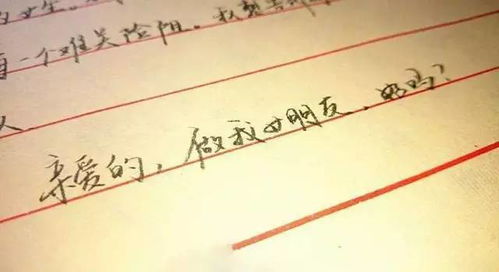 的女生。
一个难关险阻。我想
亲爱的，做我女朋友，好吗？